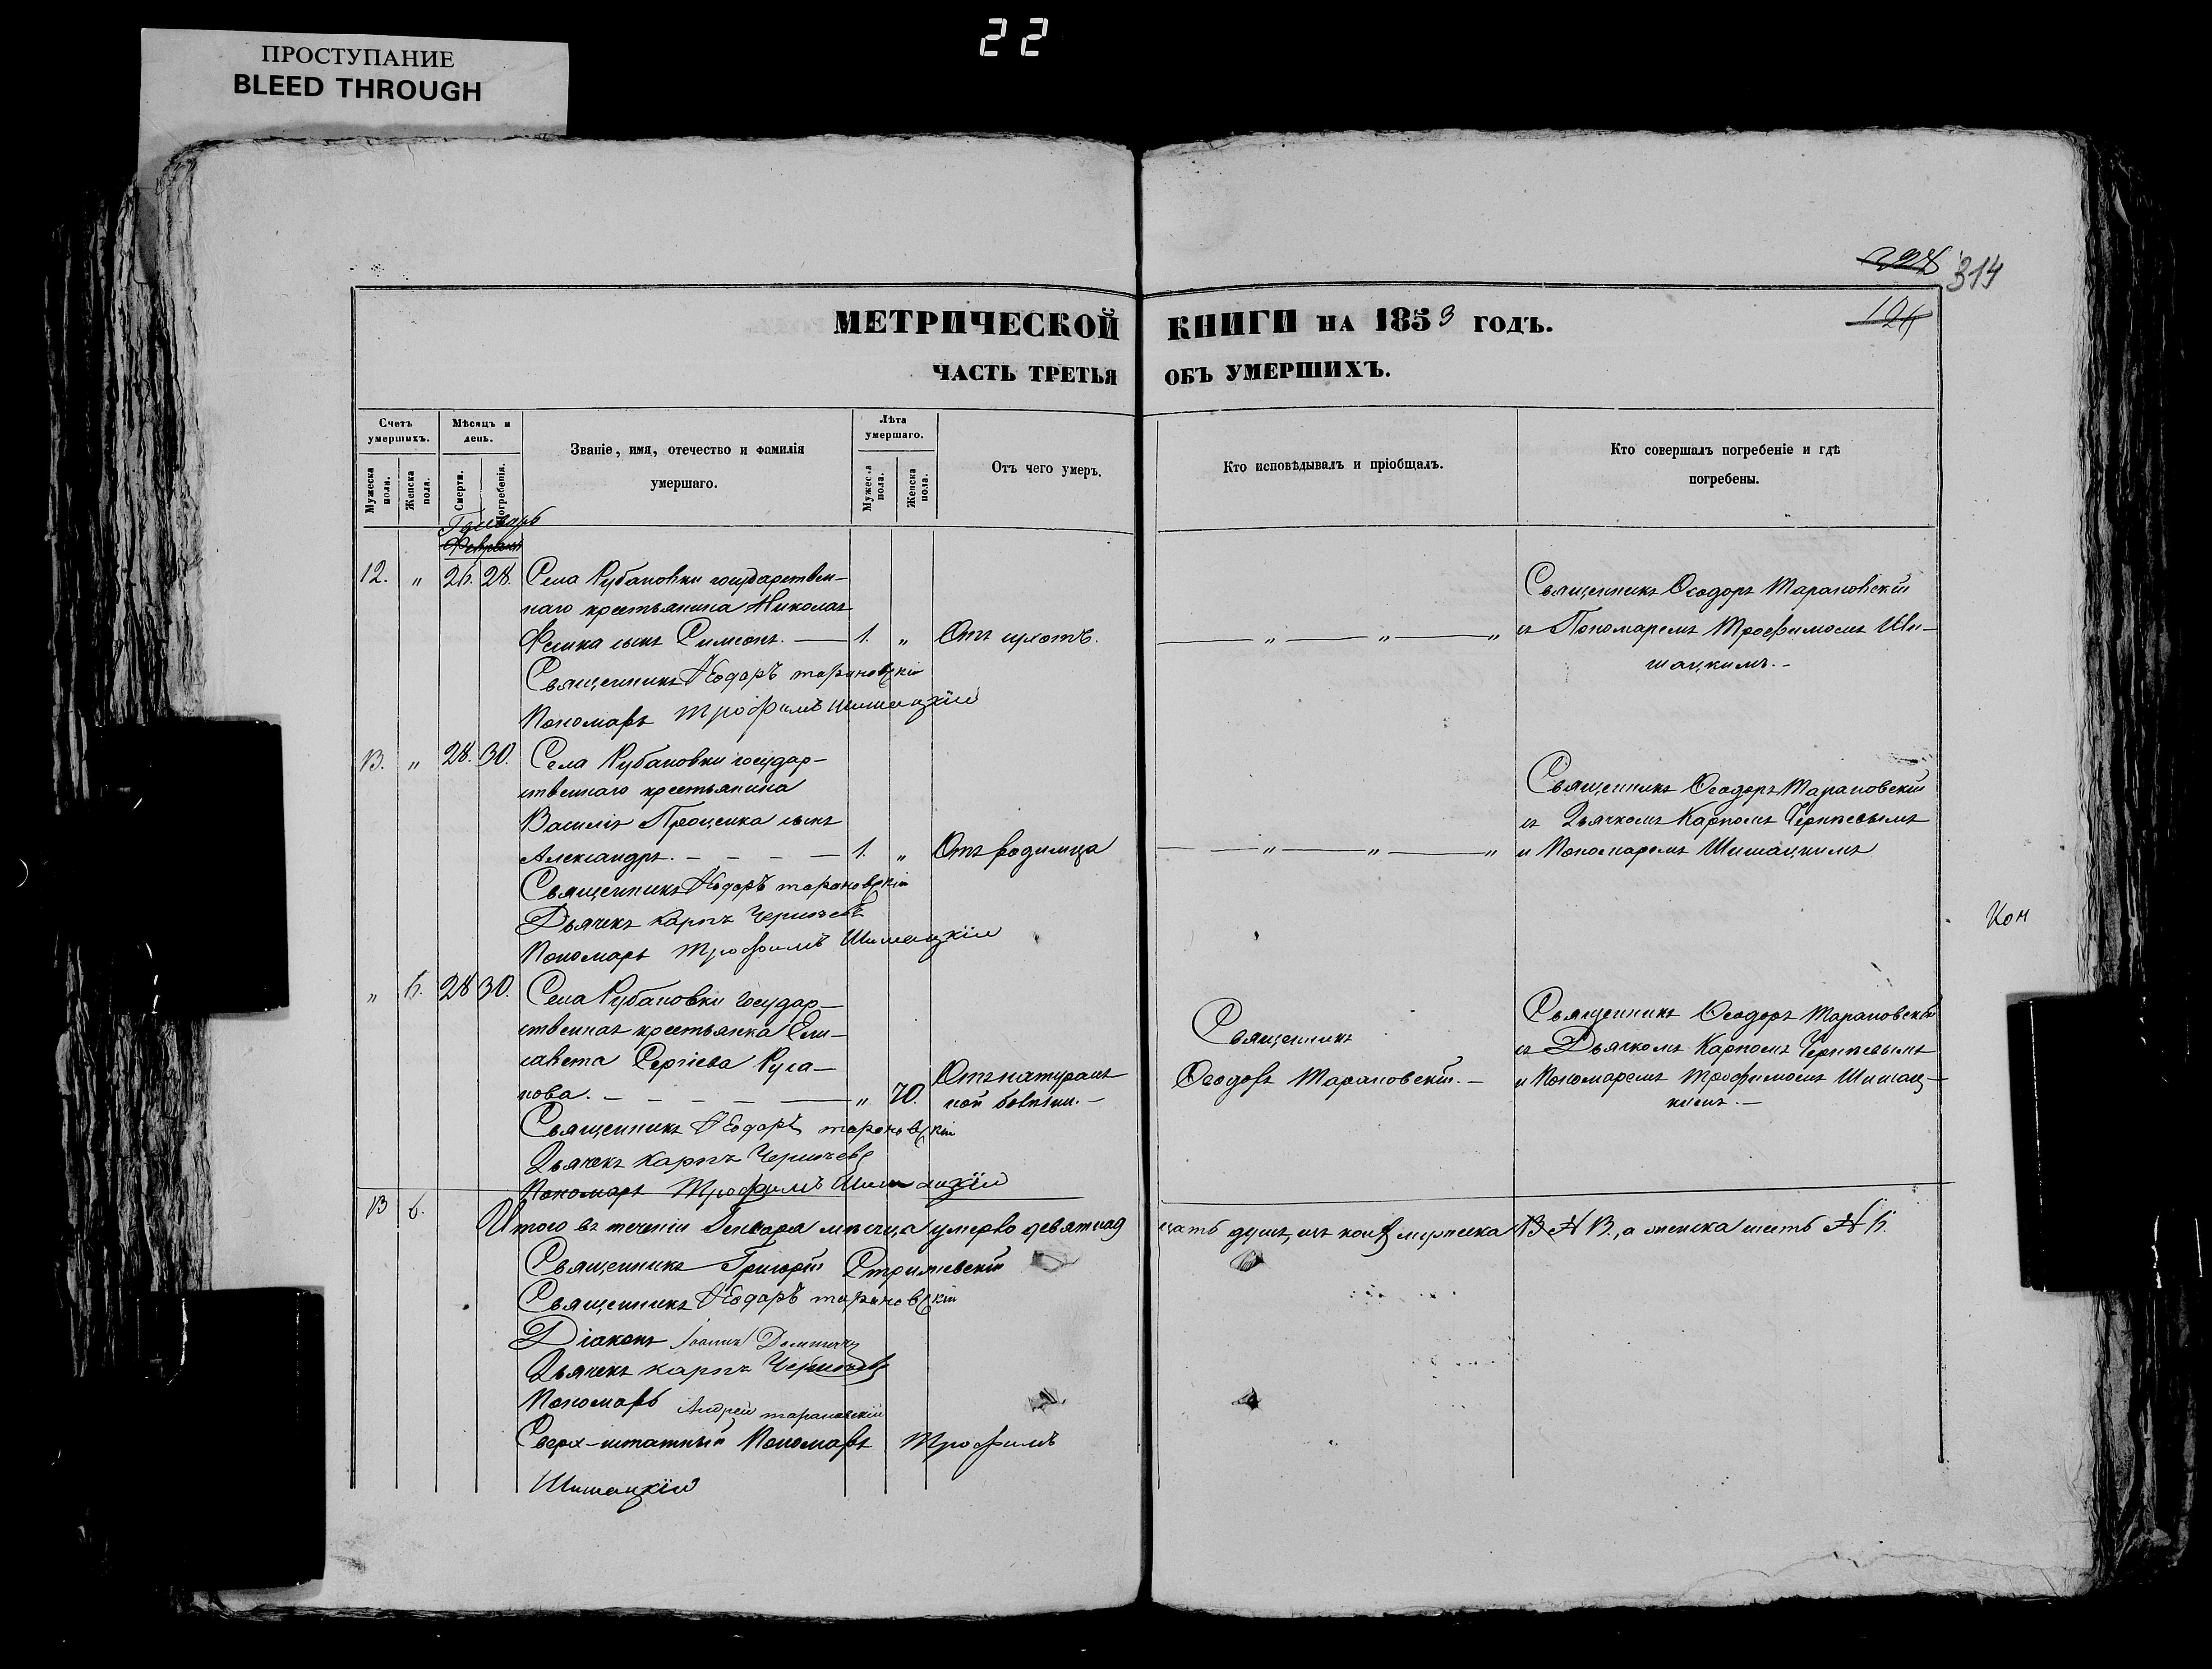 22
ПРОСТУПАНИЕ
BLEED THROUGH
314
МЕТРИЧЕСКОЙ КНИГИ НА 1853 ГОДЪ.
ЧАСТЬ ТРЕТЬЯ ОБЪ УМЕРШИХЪ.
Счетъ умершихъ.
Мужеска пола.
Женска пола.
Мѣсяцъ и день.
Смерти.
Погребенія.
Званіе, имя, отечество и фамилія
умершаго.
Лѣта умершаго.
Мужеска пола.
Женска пола.
Отъ чего умеръ.
Кто исповѣдывалъ и пріобщалъ.
Кто совершалъ погребеніе и гдѣ
погребены.
Генварь
Февраль
12. „ 26. 28. Села Рубановки государствен-
наго крестьянина Николая
сынъ Симеонъ. — 1. „
— „ — „ — „
Священникъ Ѳеодоръ Тарановскій
съ Пономаремъ Трофимомъ Ши-
шацкимъ. -
Священникъ Ѳеодоръ Тарановскій
Пономарь Трофимъ Шишацкій
13. „ 28. 30. Села Рубановки государ-
ственнаго крестьянина
Василія Проценка сынъ
Александръ. - - - — 1. „ Отъ родимца
— „ — „ — „
Священникъ Ѳеодоръ Тарановскій
съ Дьячкомъ Карпомъ
и Пономаремъ Шишацкимъ
Священникъ Ѳеодоръ Тарановскій
Дьячекъ Карпъ
Пономарь Трофимъ Шишацкій
Кон
„ 6. 28 30. Села Рубановки государ-
ственная крестьянка Ели-
савета Сергіева
нова. - - - - — „ 70. Отъ натураль-
ной болѣзни. -
Священникъ
Ѳеодоръ Тарановскій. -
Священникъ Ѳеодоръ Тарановскій
съ Дьячкомъ Карпомъ
и Пономаремъ Трофимомъ Шишац-
кимъ. -
Священникъ Ѳеодоръ Тарановскій
Дьячекъ Карпъ
Пономарь Трофимъ Шишацкій
13 6. Итого въ теченіи Генваря мѣсяца умерло девятнад
цать душъ, изъ коихъ мужеска 13 № 13., а женска шесть № 6.
Священникъ Григорій Стрижевскій
Священникъ Ѳеодоръ Тарановскій
Діаконъ Іоаннъ
Дьячекъ Карпъ
Пономарь Андрей Тарановскій
Сверх-штатный Пономарь Трофимъ
Шишацкій